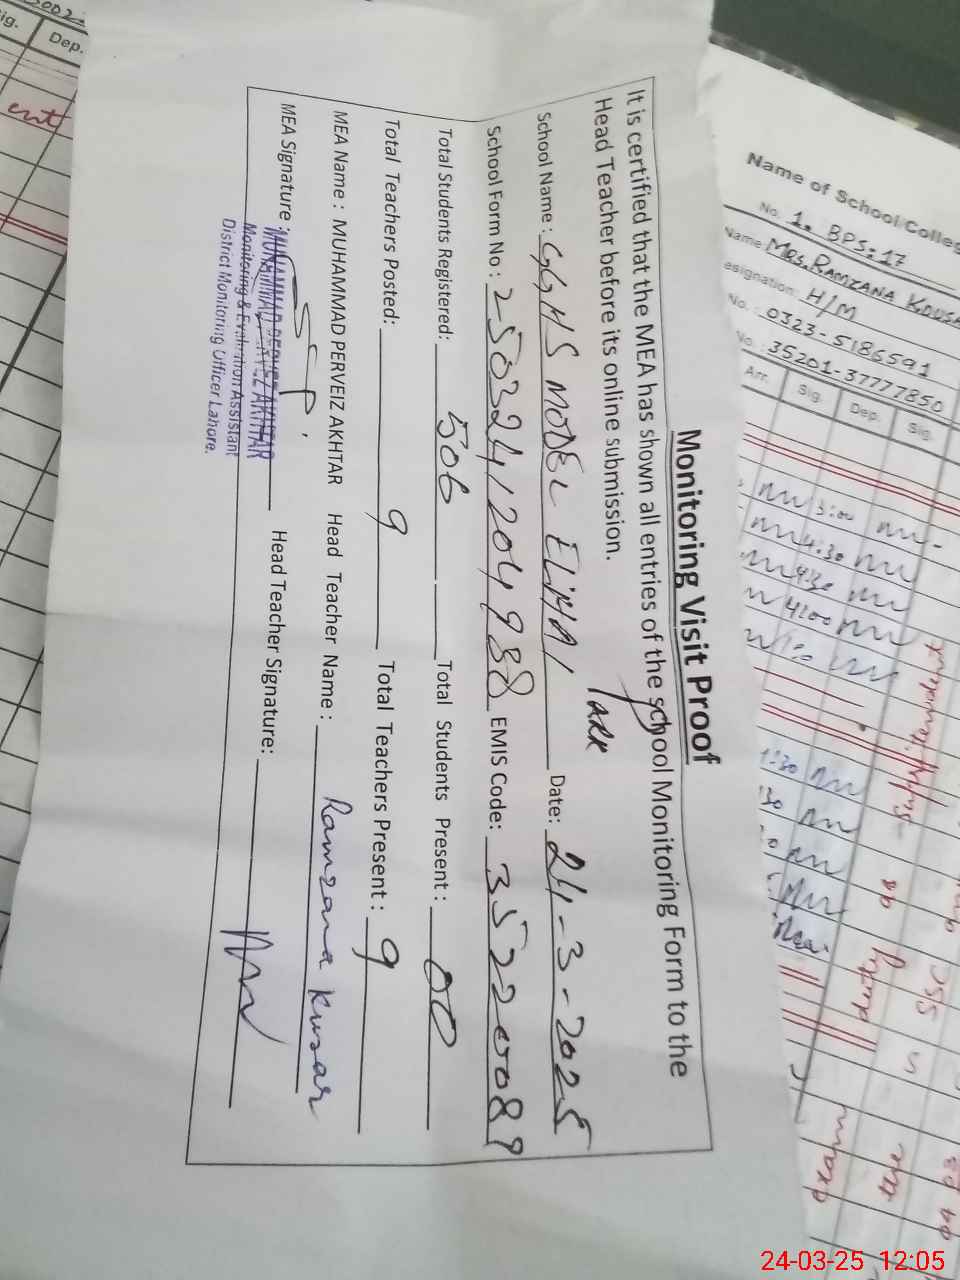 Monitoring Visit Proof
It is certified that the MEA has shown all entries of the school Monitoring Form to the
Head Teacher before its online submission.
School Name: GGHS MODEL ELMAI Park Date: 24-3-2025
School Form No: 250324120498 EMIS Code:
Total Students Registered: 506 Total Students Present: 00
Total Teachers Posted: 9 Total Teachers Present: 9
MEA Name: MUHAMMAD PERVEIZ AKHTAR Head Teacher Name: Ramzana Kusar
MEA Signature: Head Teacher Signature:
MUHAMMAD PERVEZ AKHTAR
Monitoring & Evaluation Assistant
District Monitoring Officer Lahore.
Name of School/Colleg
No. 1. BPS:17
Name Mrs. RAMZANA KOUSA
esignation: H/M
No.: 0323-5186591
No.: 35201-37777850
Arr. Sig. Dep. Sig.
3:00
4:30
4:30
4:00
1:30
30
Suprintendent
duty as
SSC
exam
the
Sig. Dep.
ent
24-03-25 12:05